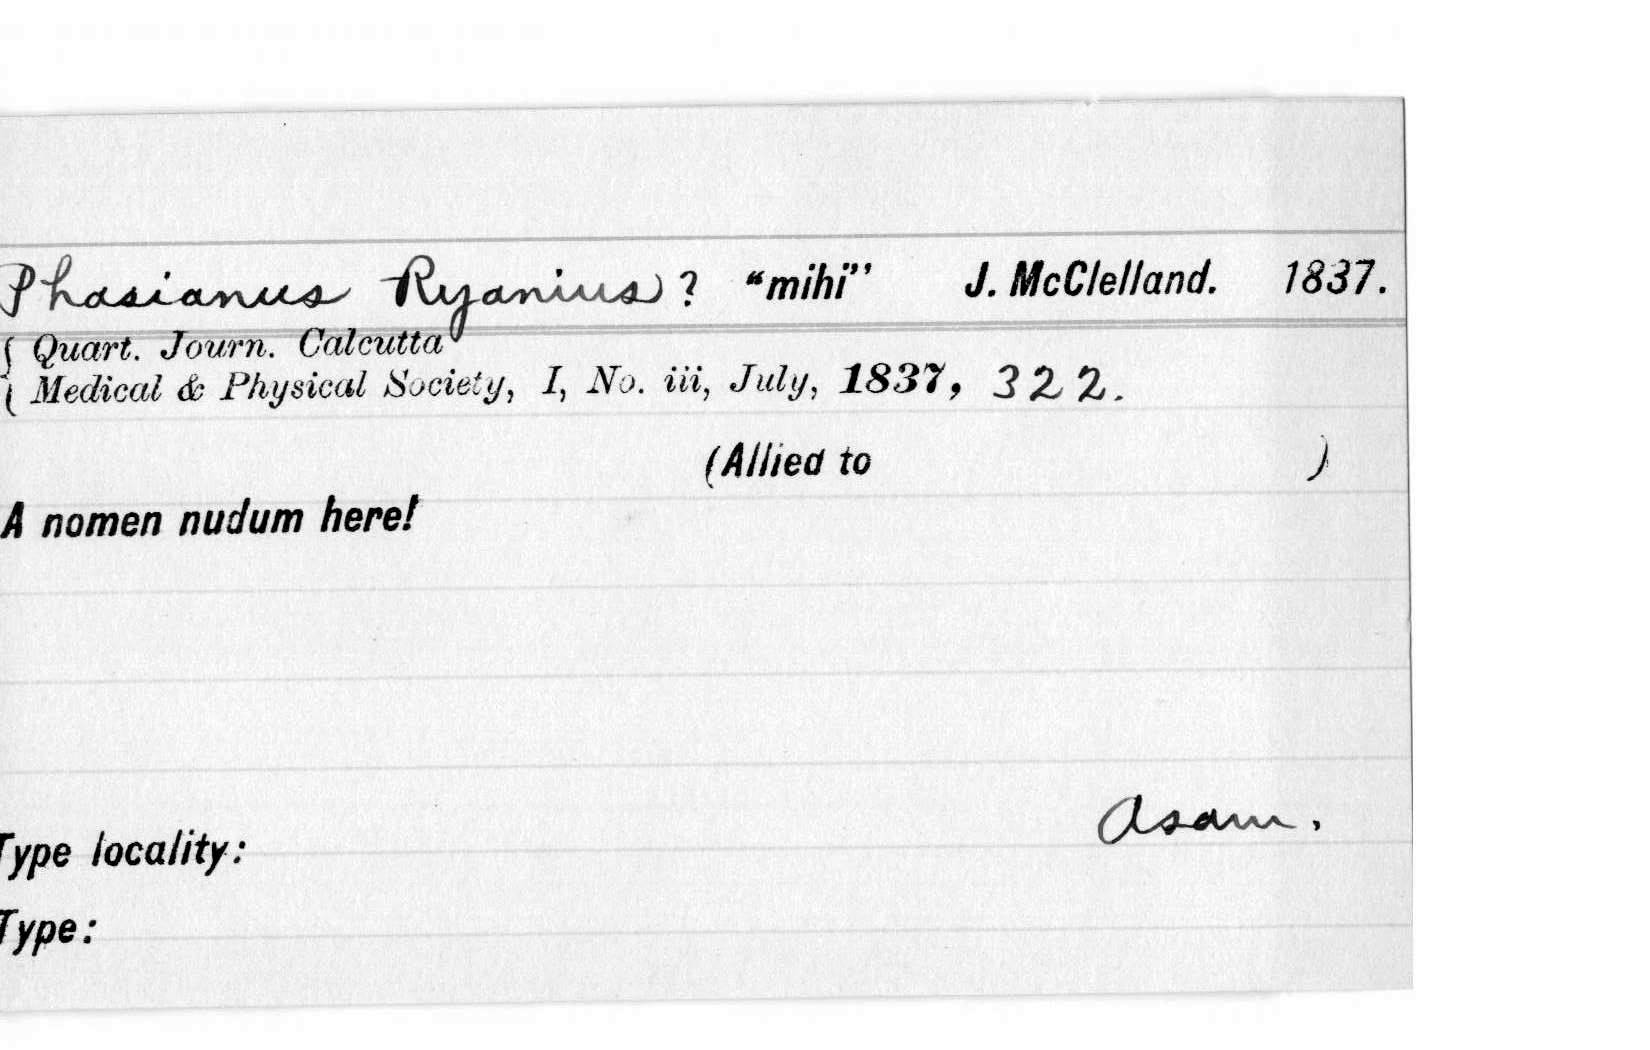 Phasianus Ryanius? “mihi” J. McClelland. 1837.
Quart. Journ. Calcutta
Medical & Physical Society, I, No. iii, July, 1837, 322.
(Allied to )
A nomen nudum here!
Asam.
Type locality:
Type: